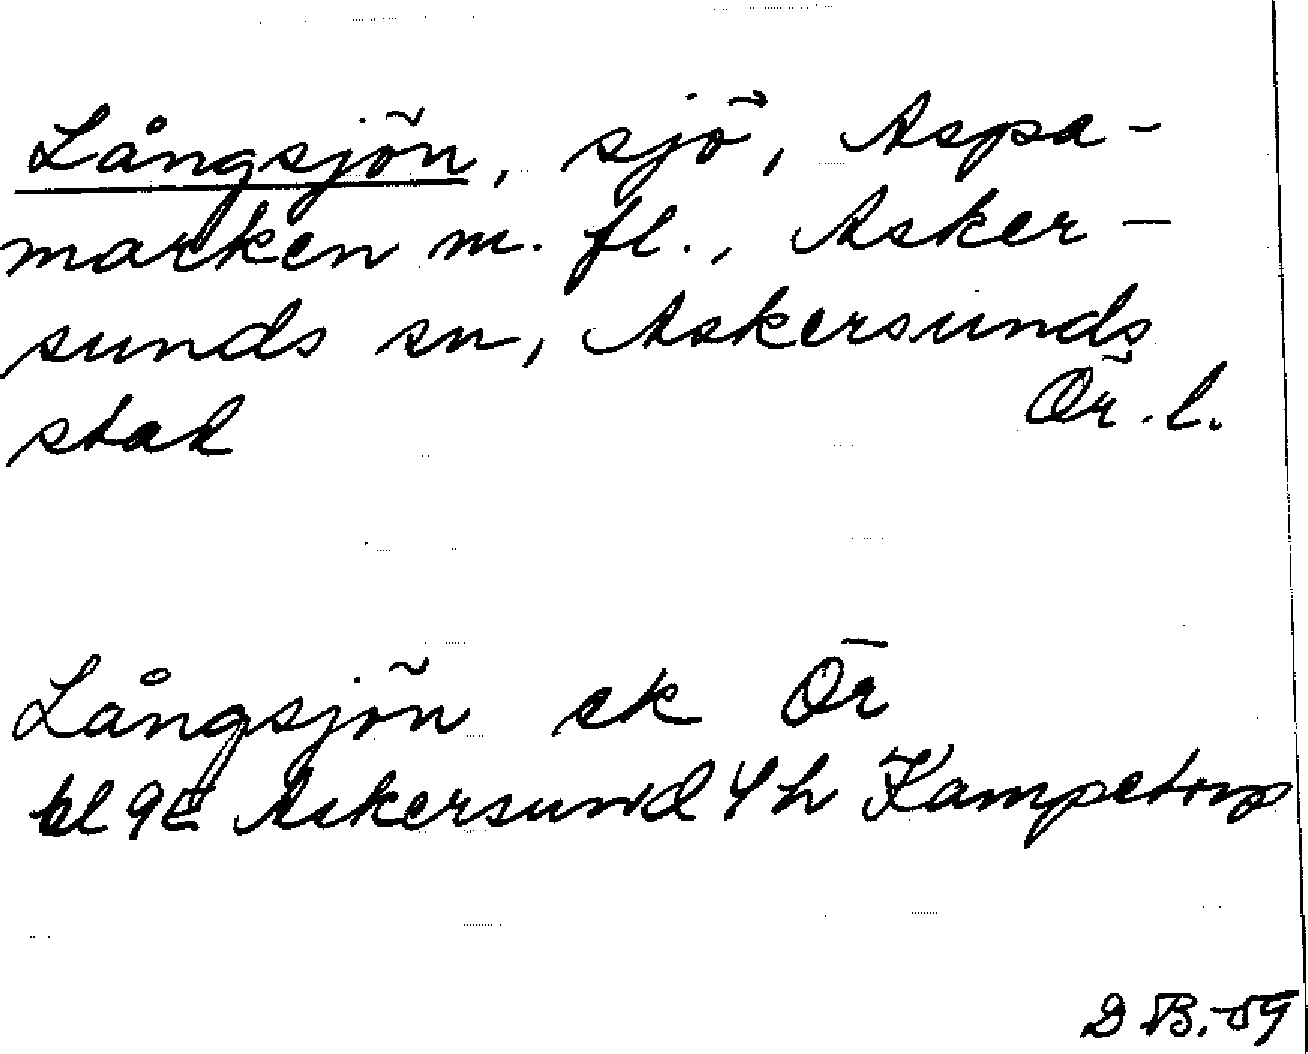 Långsjön, sjö, Aspa-
marken m. fl., Asker-
sunds sn, Askersunds
stad Ör. l.
Långsjön ek Ör
bl 9E Askersund 4h Kampetorp
D B.-59